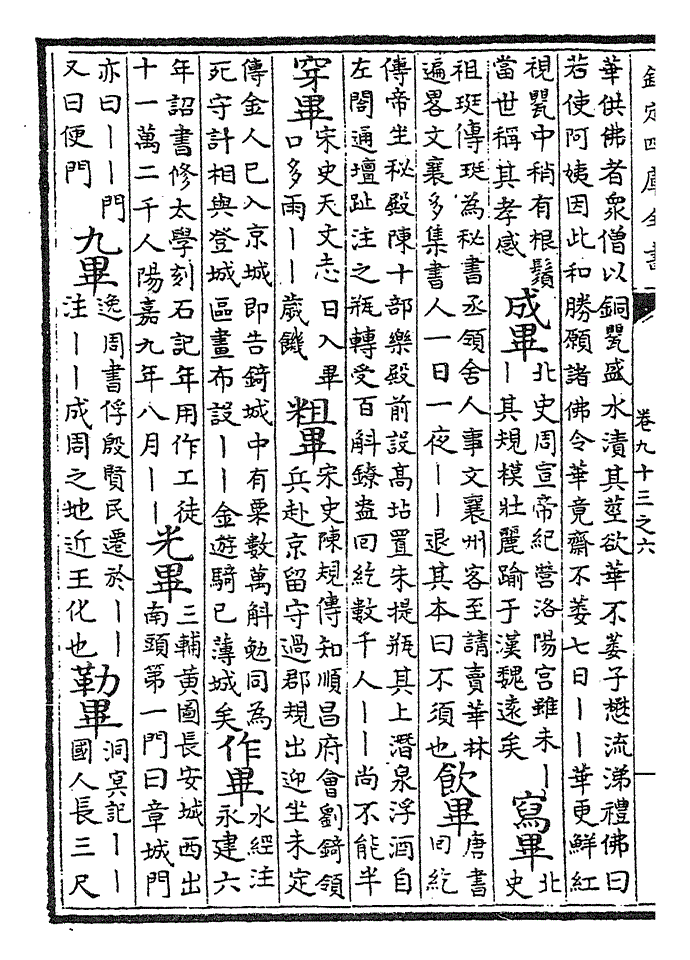 欽定四庫全書
卷九十三之六
華供佛者衆僧以銅甖盛水漬其莖欲華不萎子懋流涕禮佛曰
若使阿姨因此和勝願諸佛令華竟齋不萎七日丨丨華更鮮紅
視甖中稍有根鬚
當世稱其孝感
成畢
北史周宣帝紀營洛陽宫雖未丨
丨其規模壯麗踰于漢魏遠矣
寫畢
北
史
祖珽傳珽為秘書丞領舍人事文襄州客至請賣華林
遍畧文襄多集書人一日一夜丨丨退其本曰不須也
飲畢
唐書
回紇
傳帝坐秘殿陳十部樂殿前設高坫置朱提瓶其上潛泉浮酒自
左閤通壇趾注之瓶轉受百斛鐐盎回紇數千人丨丨尚不能半
穿畢
宋史天文志日入畢
口多雨丨丨歲饑
粗畢
宋史陳規傳知順昌府會劉錡領
兵赴京留守過郡規出迎坐未定
傳金人已入京城即告錡城中有粟數萬斛勉同為
死守計相與登城區畫布設丨丨金遊騎已薄城矣
作畢
水經注
永建六
年詔書修太學刻石記年用作工徒
十一萬二千人陽嘉九年八月丨丨
光畢
三輔黃圖長安城西出
南頭第一門曰章城門
亦曰丨丨門
又曰便門
九畢
逸周書俘殷賢民遷於丨丨
注丨丨成周之地近王化也
勒畢
洞冥記丨丨
國人長三尺